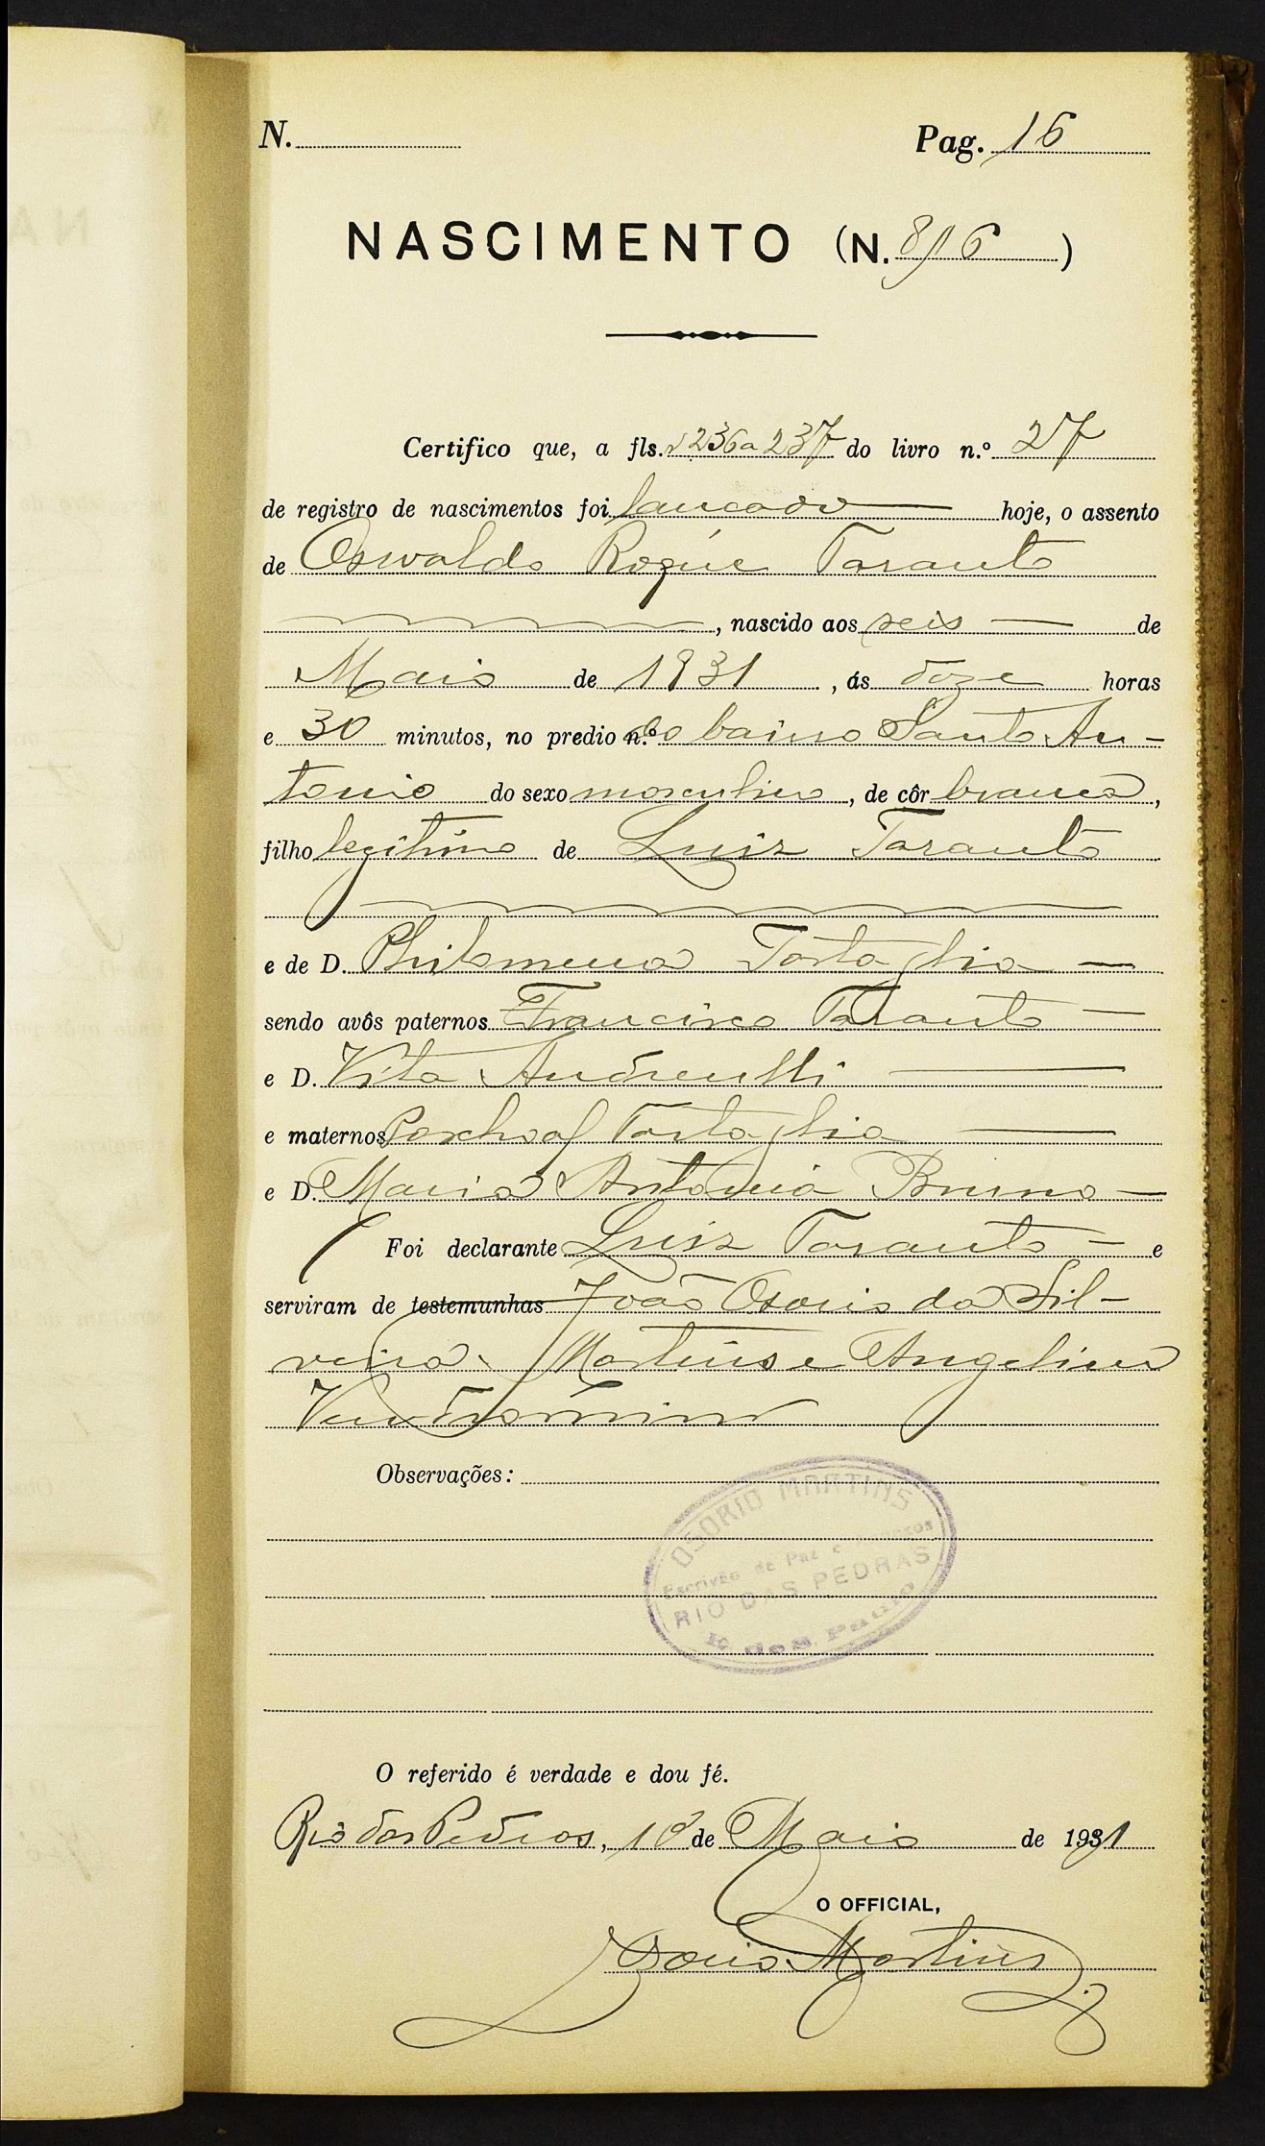 N. Pag. 16
NASCIMENTO (N. 816)
Certifico que, a fls. v236 a 237 do livro n.º 27
de registro de nascimentos foi lançado hoje, o assento
de Oswaldo Roque Taranto
, nascido aos seis de
Maio de 1931, ás doze horas
e 30 minutos, no predio n.º do bairro Santo An-
tonio do sexo masculino, de côr branca,
filho legitimo de Luiz Taranto
e de D. Philomena Tartaglia
sendo avôs paternos Francisco Taranto
e D. Vita Andreulli
e maternos Paschoal Tartaglia
e D. Maria Antonia Bruno
Foi declarante Luiz Taranto e
serviram de testemunhas João Osorio da Sil-
veira Martins e Angelina
Vendramini
Observações:
OSORIO MARTINS
Escrivão de Paz e Annexos
RIO DAS PEDRAS
E. de S. Paulo
O referido é verdade e dou fé.
Rio das Pedras, 18 de Maio de 1931
O OFFICIAL,
Osorio Martins